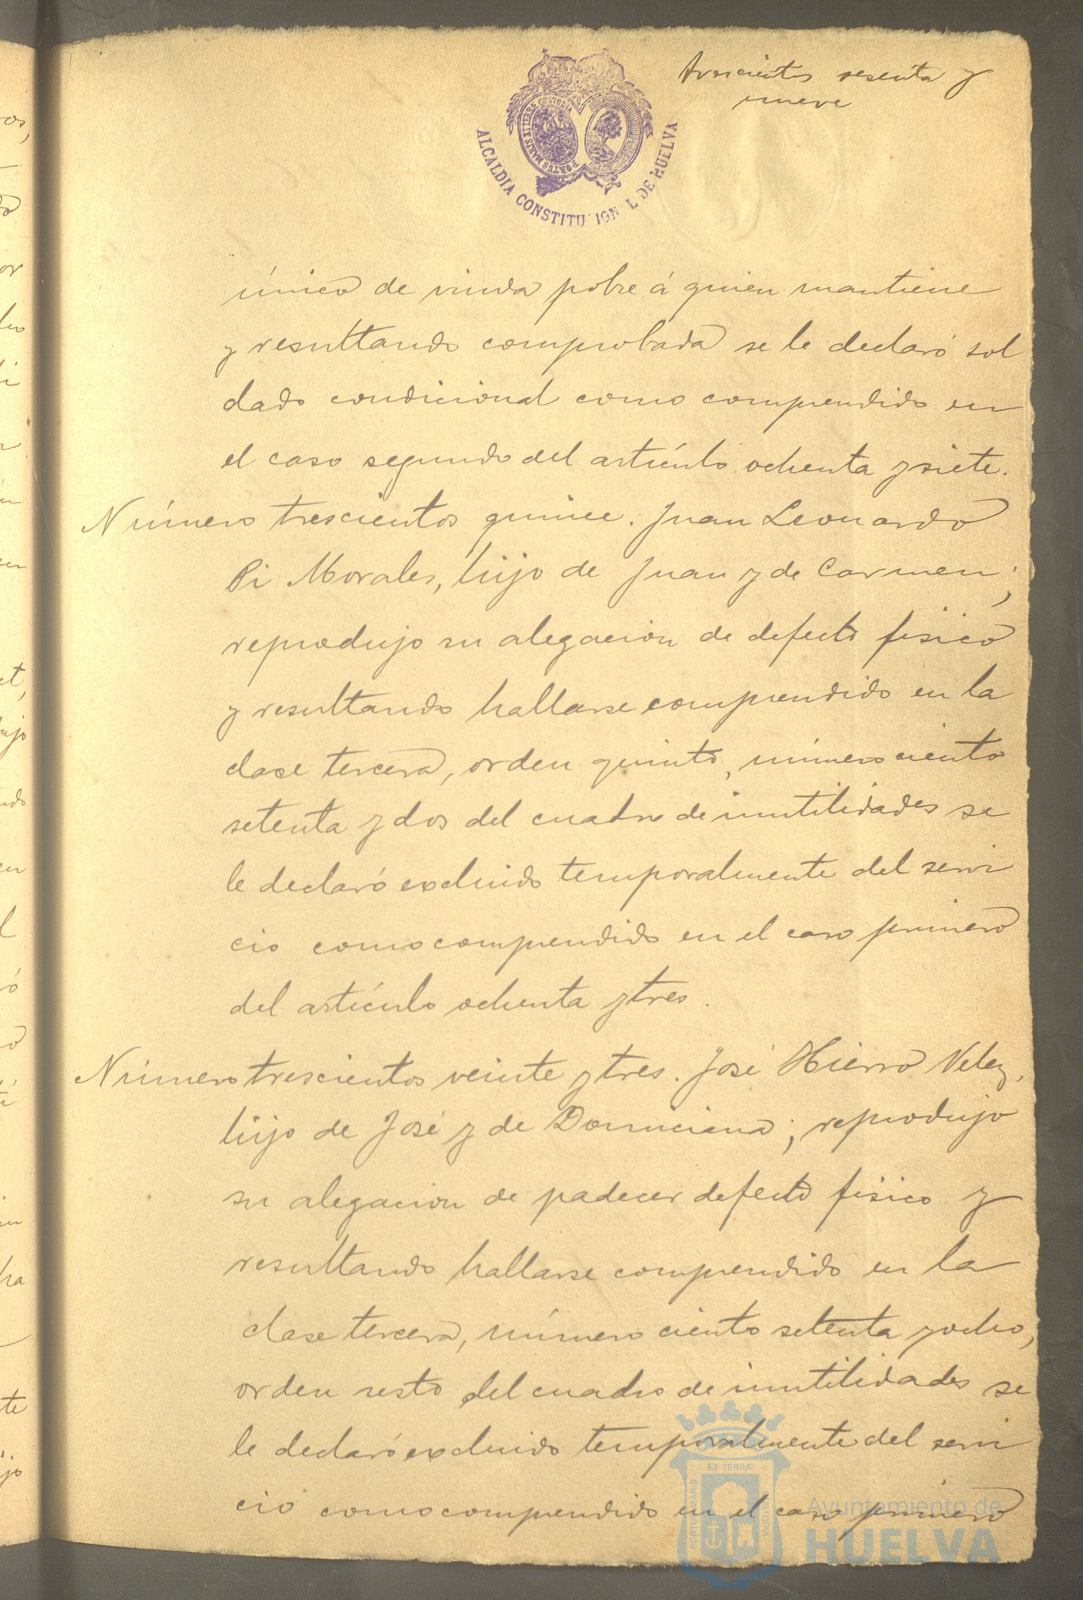 Doscientos sesenta y
nueve
ALCALDIA CONSTITUCIONAL DE HUELVA
único de viuda pobre á quien mantiene
y resultando comprobada se le declaró sol
dado condicional como comprendido en
el caso segundo del artículo ochenta y siete.
Número trescientos quince. Juan Leonardo
Pi Morales, hijo de Juan y de Carmen;
reprodujo su alegacion de defecto fisico
y resultando hallarse comprendido en la
clase tercera, orden quinto, número ciento
setenta y dos del cuadro de inutilidades se
le declaró excluido temporalmente del servi
cio como comprendido en el caso primero
del artículo ochenta y tres.
Número trescientos veinte y tres. José Hierro Velez,
hijo de José y de Domiciana; reprodujo
su alegacion de padecer defecto fisico y
resultando hallarse comprendido en la
clase tercera, número ciento setenta y ocho,
orden sesto del cuadro de inutilidades se
le declaró excluido temporalmente del servi
cio como comprendido en el caso primero
Ayuntamiento de
HUELVA